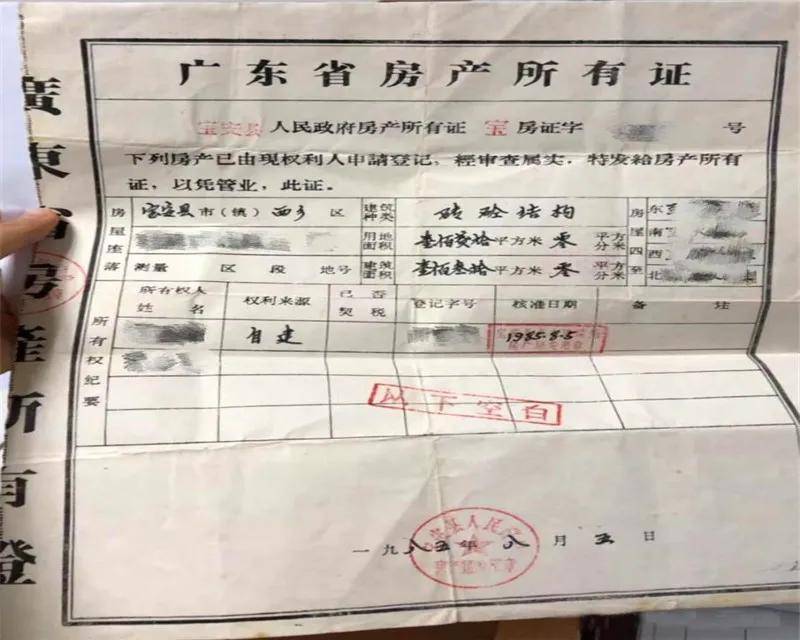 廣東省房產所有證
广东省房产所有证
宝安县人民政府房产所有证 宝 房证字 号
下列房产已由现权利人申請登记,經审查属实,特发給房产所有
证,以凭管业,此证。
房屋座落 宝安县市(镇)西乡区 建筑种类 砖砼结构 房屋四至 东
用地面积 壹佰 平方米 零 平方分米 南
西
测量 区 段 地号 建筑面积 壹佰叁拾平方米 零 平方分米 北
所有权纪要 所有权人姓名 权利来源 已否契税 登记字号 核准日期 备 注
自建 1985.8.5
以下空白
一九八五年八月五日